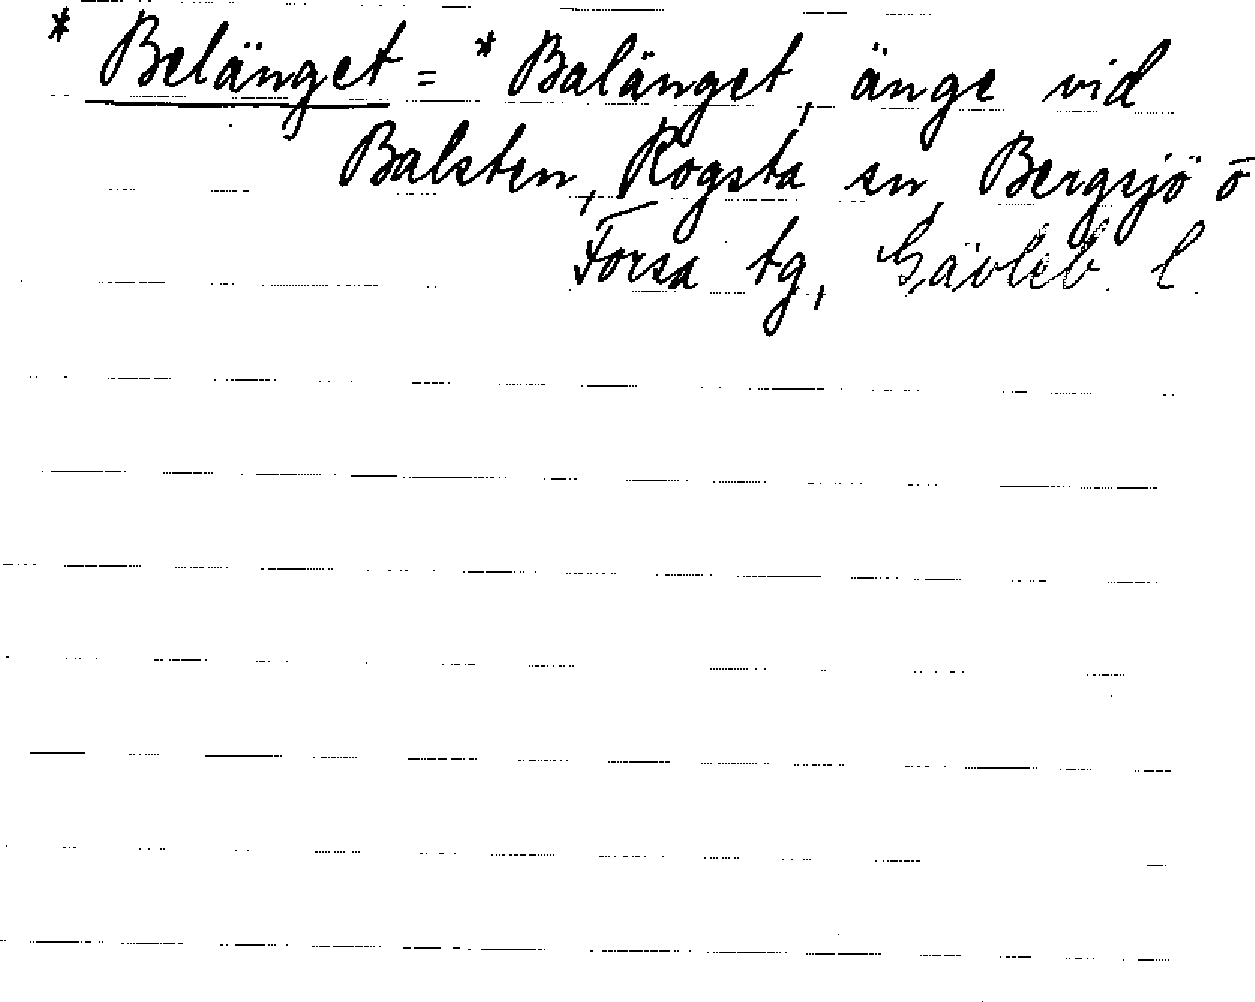 * Belänget = * Balänget, änge vid
Balsten, Rogsta sn, Bergsjö o
Forsa tg, Gävleb. l.